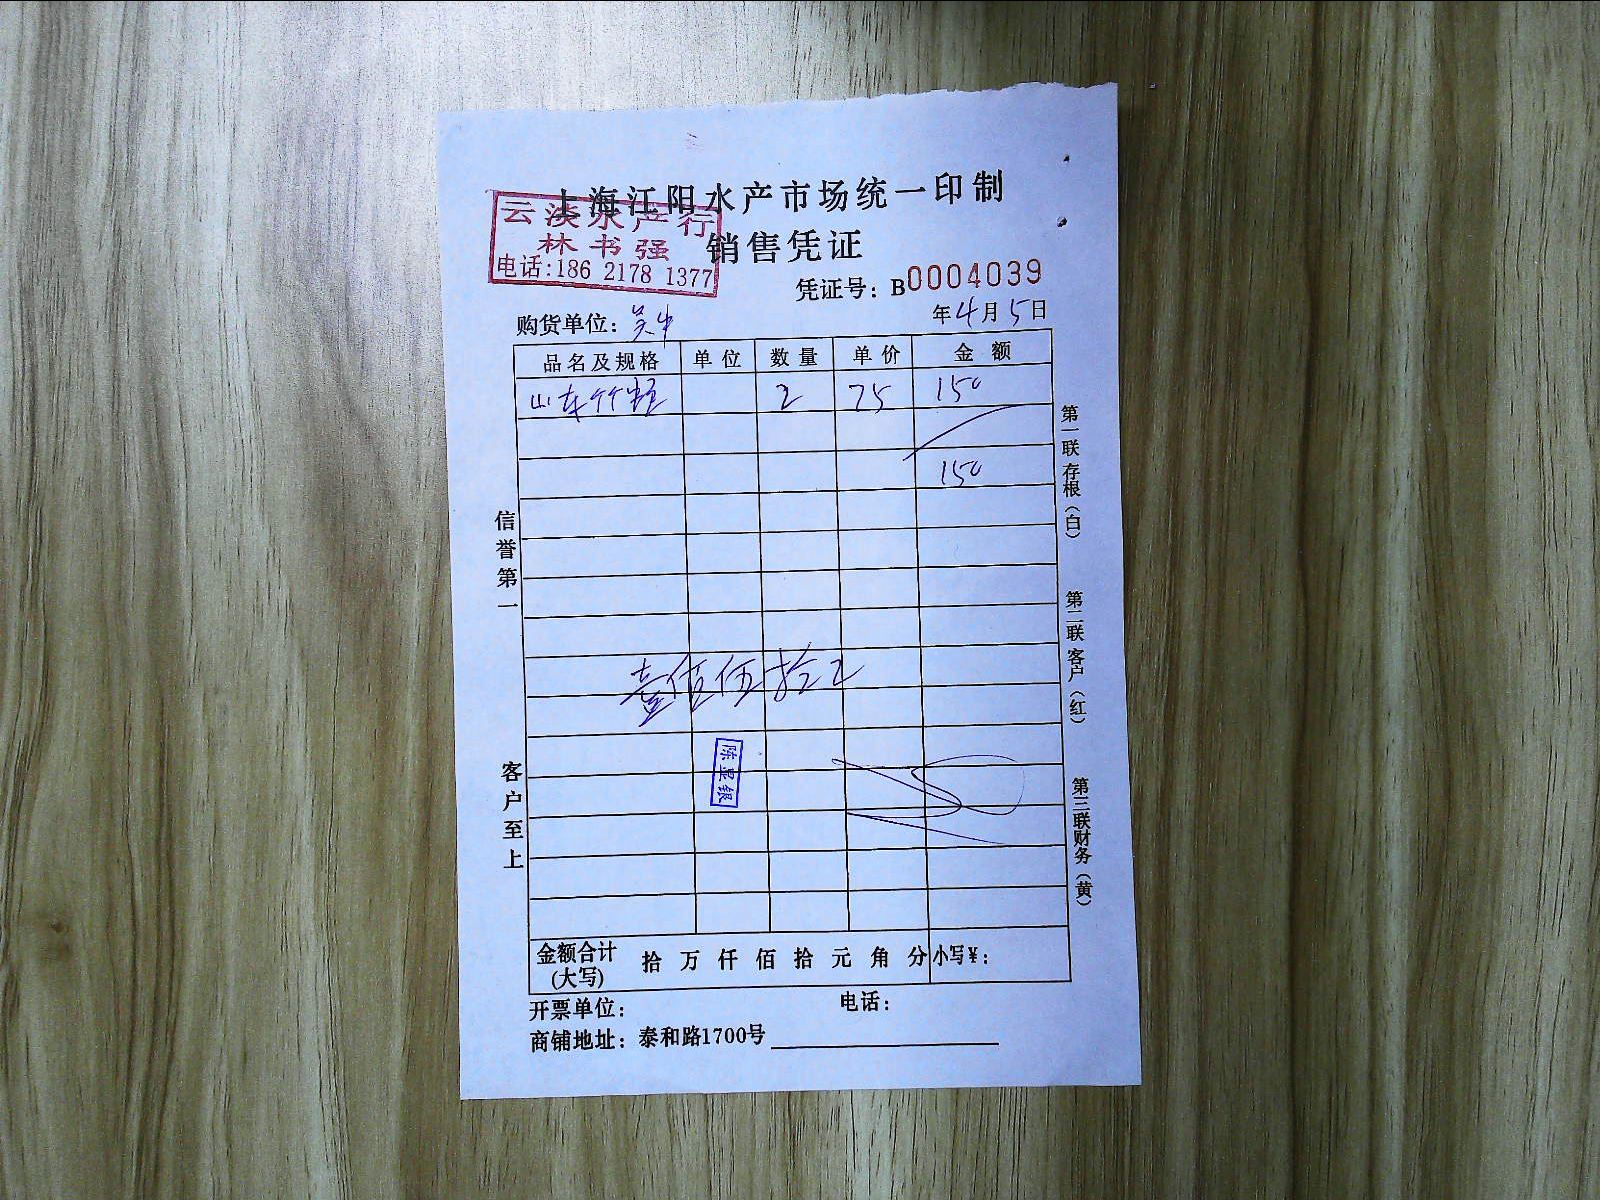 上海江阳水产市场统一印制
云淡水产行
林书强
电话:186 2178 1377
销售凭证
凭证号：B0004039
购货单位：吴中
年4月5日
品名及规格 单位 数量 单价 金额
山东竹蛏 2 75 150
150
壹佰伍拾元
陈显银
金额合计(大写) 拾 万 仟 佰 拾 元 角 分 小写¥：
开票单位： 电话：
商铺地址：泰和路1700号
信誉第一
客户至上
第一联存根（白）
第二联客户（红）
第三联财务（黄）